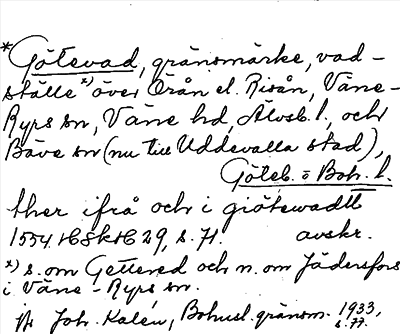 * Götevad, gränsmärke, vad-
ställe *) över Örån el. Risån, Väne-
Ryrs sn, Väne hd, Älvsb. l., och
Bäve sn (nu till Uddevalla stad),
Göteb. o Boh. l.
ther ifrå och i giötewadtt
1554 HSkH 29, s. 71. avskr.
*) s. om Gettered och n. om Jädersfors
i Väne-Ryrs sn.
Joh. Kalén, Bohusl. gränsm. 1933,
s. 77.